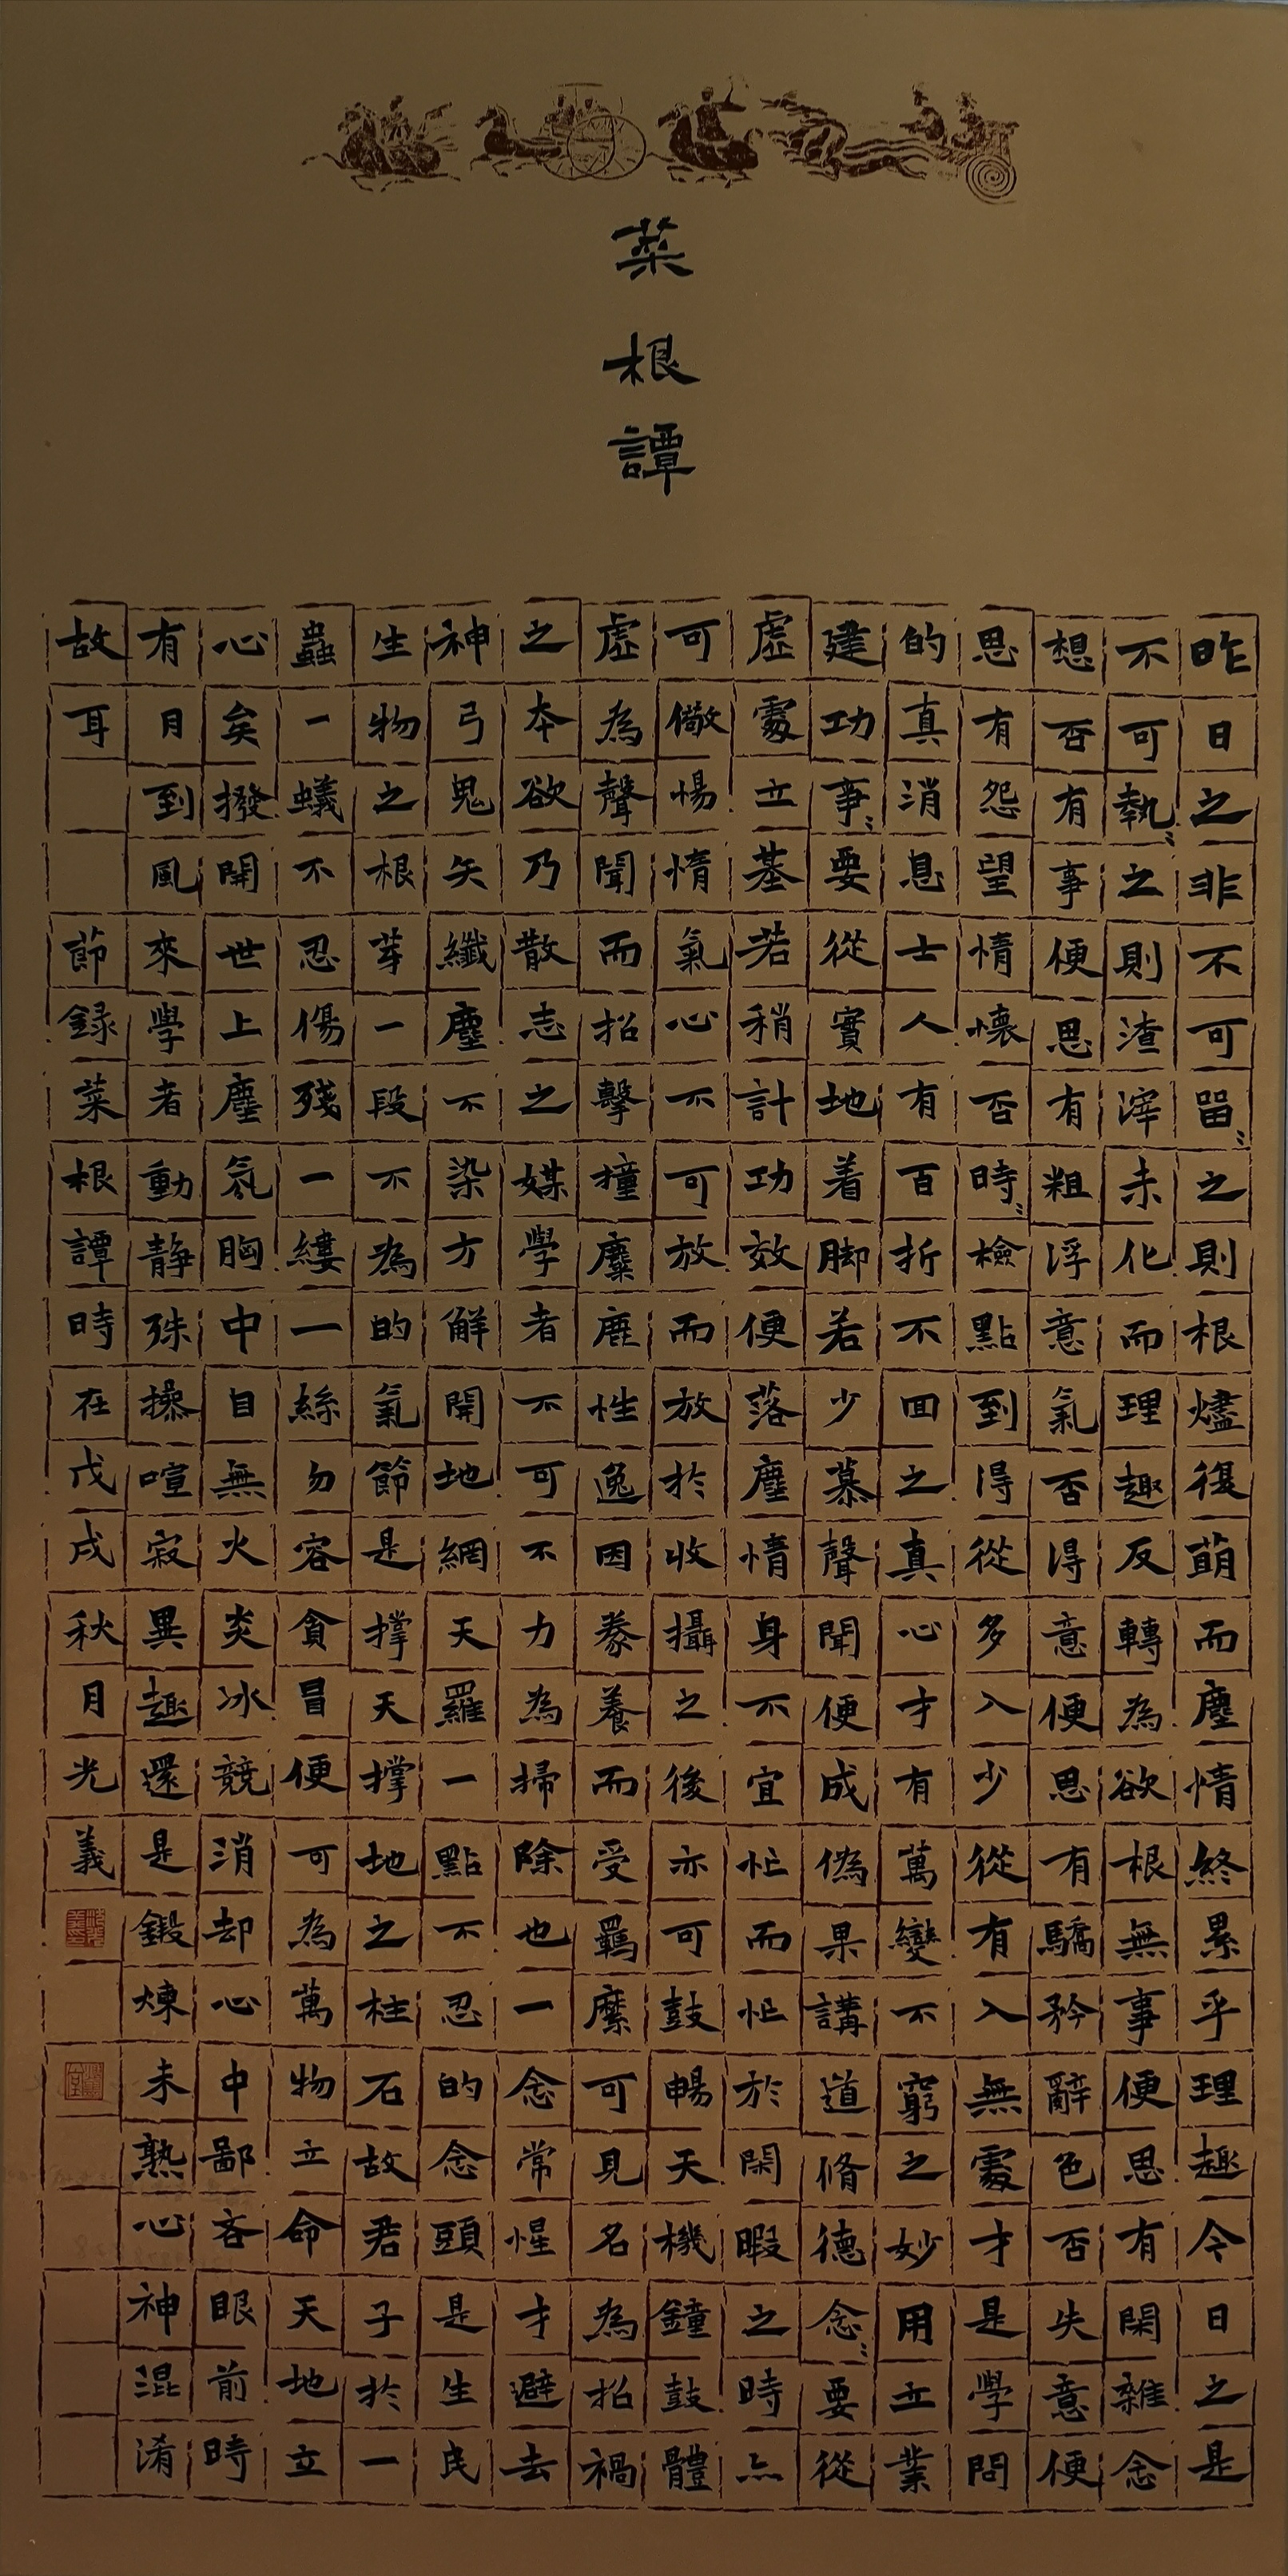 菜根譚
昨日之非不可留〻之則根燼復萌而塵情終累乎理趣今日之是
不可執〻之則渣滓未化而理趣反轉為欲根無事便思有閑雜念
想否有事便思有粗浮意氣否得意便思有驕矜辭色否失意便
思有怨望情懷否時〻檢點到得從多入少從有入無處才是學問
的真消息士人有百折不回之真心才有萬變不窮之妙用立業
建功事〻要從實地着脚若少慕聲聞便成偽果講道脩德念〻要從
虛處立基若稍計功效便落塵情身不宜忙而忙於閑暇之時亦
可儆惕惰氣心不可放而放於收攝之後亦可鼓暢天機鐘鼓體
虛為聲聞而招擊撞麋鹿性逸因豢養而受羈縻可見名為招禍
之本欲乃散志之媒學者不可不力為掃除也一念常惺才避去
神弓鬼矢纖塵不染方解開地網天羅一點不忍的念頭是生民
生物之根芽一段不為的氣節是撑天撑地之柱石故君子於一
蟲一蟻不忍傷殘一縷一絲勿容貪冒便可為萬物立命天地立
心矣撥開世上塵氛胸中自無火炎冰競消却心中鄙吝眼前時
有月到風來學者動静殊操喧寂異趣還是鍛煉未熟心神混淆
故耳 節録菜根譚時在戊戌秋月光義